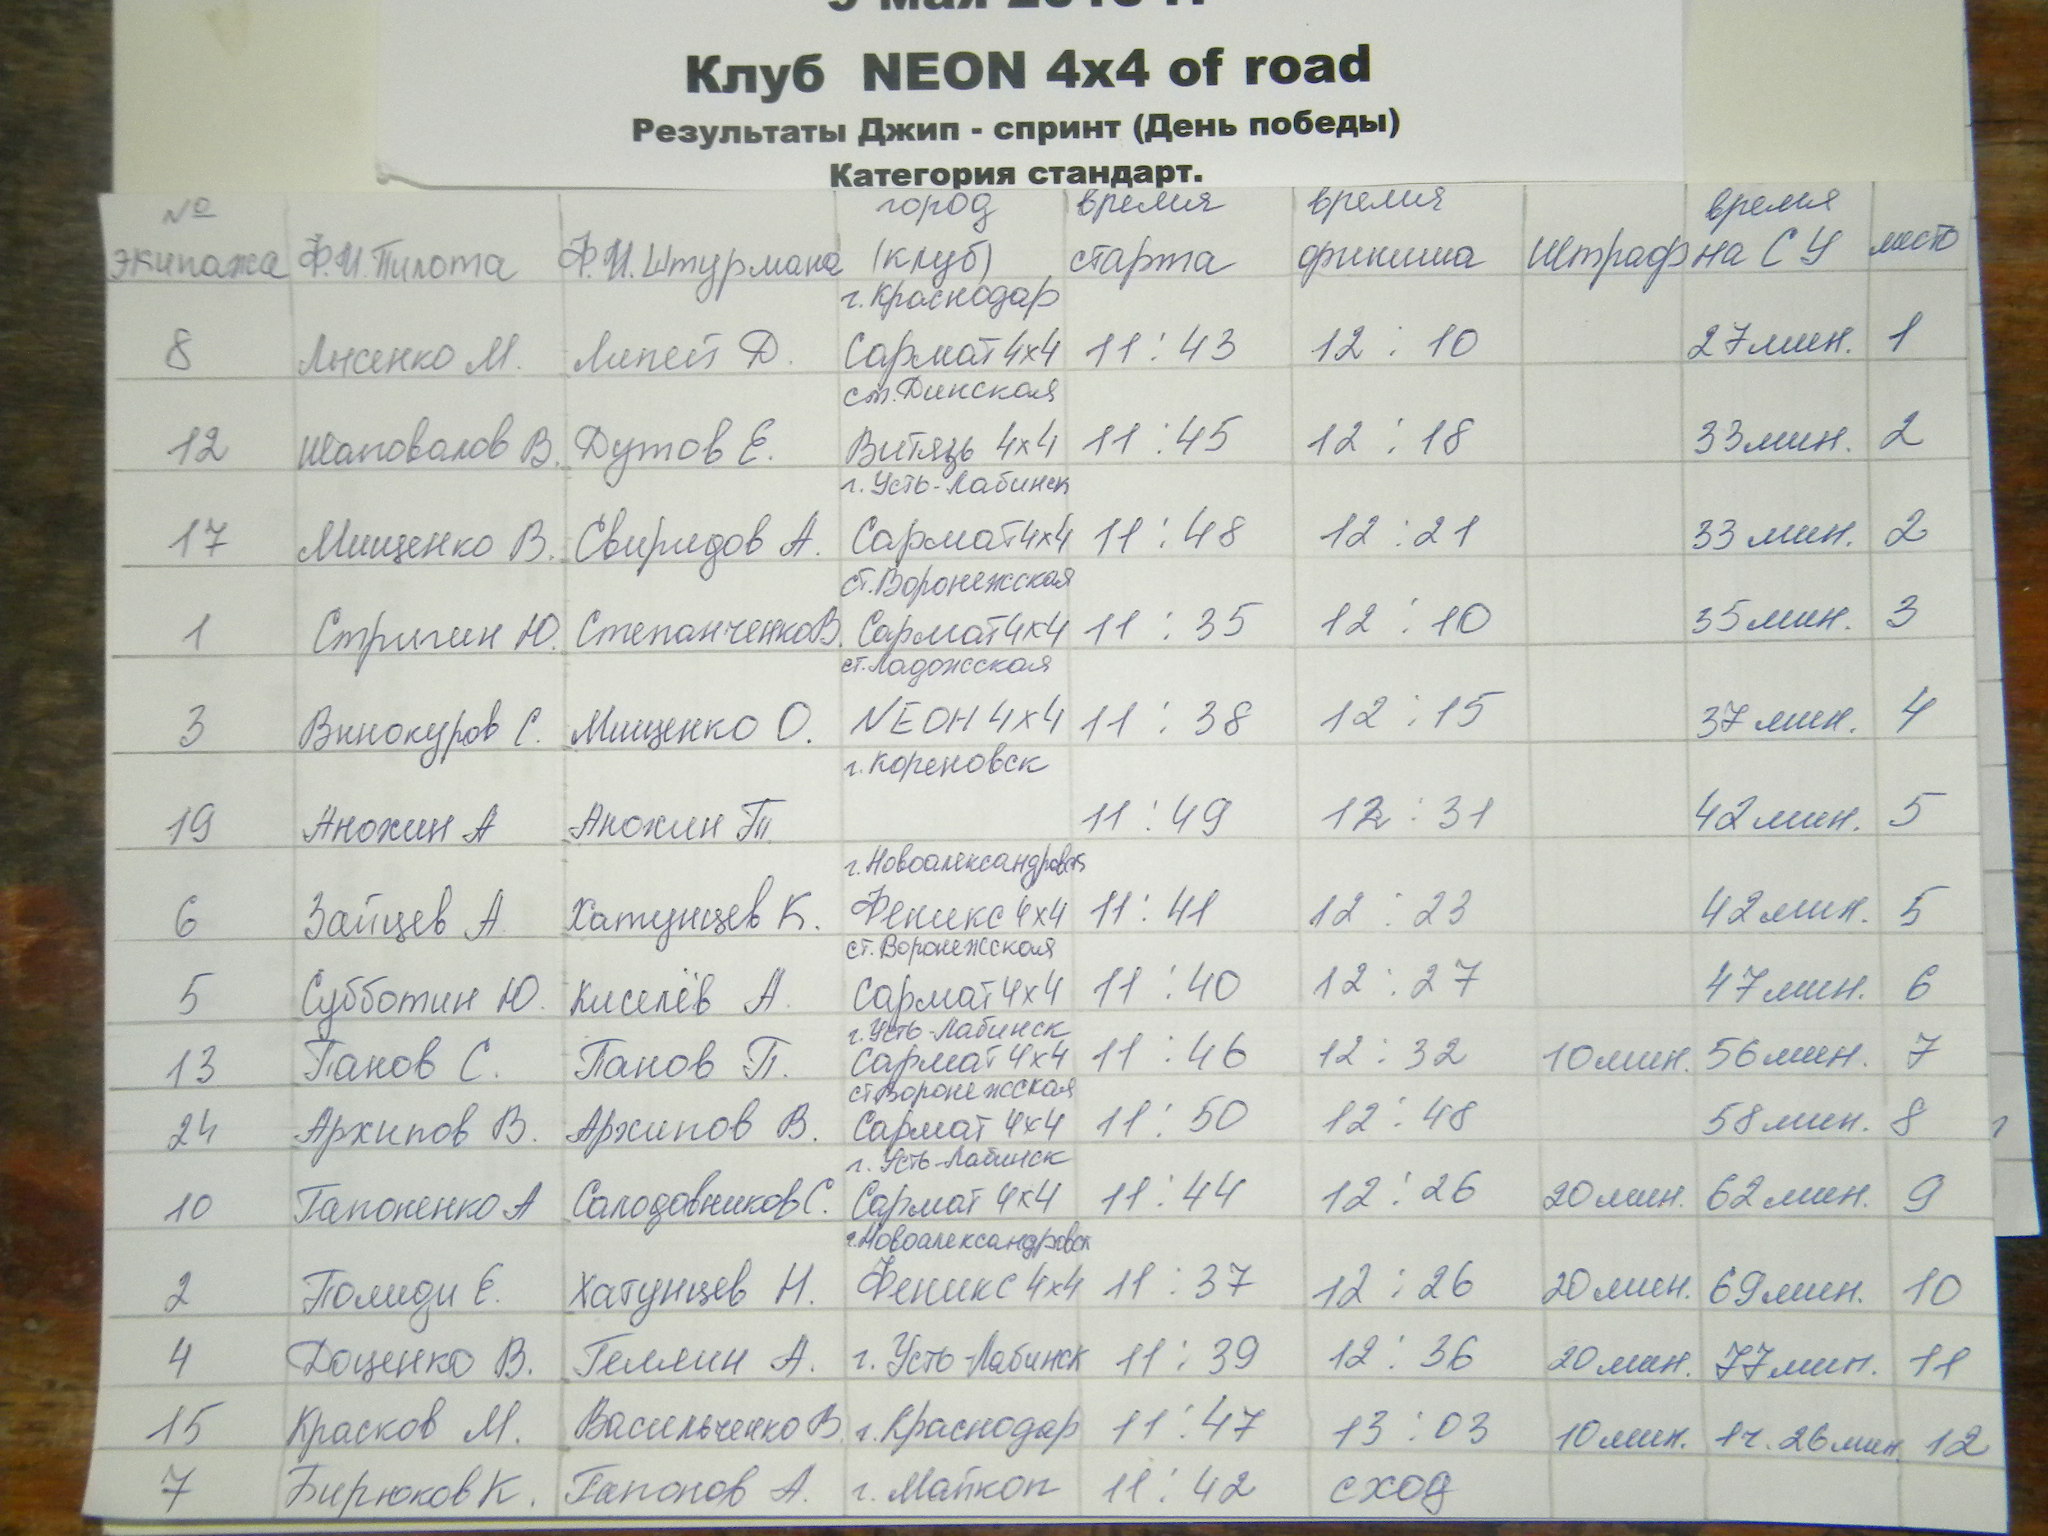 Клуб NEON 4x4 of road
Результаты Джип - спринт (День победы)
Категория стандарт.
№ экипажа Ф.И.Пилота Ф.И.Штурмана город (клуб) время старта время финиша Штраф время на СУ место
г.Краснодар
8 Лысенко М. Липей Д. Сармат 4х4 11:43 12:10 27мин. 1
ст.Динская
12 Шаповалов В. Дутов Е. Витязь 4х4 11:45 12:18 33мин. 2
г.Усть-Лабинск
17 Мищенко В. Свиридов А. Сармат 4х4 11:48 12:21 33 мин. 2
ст.Воронежская
1 Стригин Ю. Степанченко В. Сармат 4х4 11:35 12:10 35мин. 3
ст.Ладожсская
3 Винокуров С. Мищенко О. NEOH 4х4 11:38 12:15 37мин. 4
г.Кореновск
19 Анохин А Анохин П. 11:49 12:31 42мин. 5
г.Новоалександровск
6 Зайцев А Хатунцев К. Феникс 4х4 11:41 12:23 42мин. 5
ст.Воронежсская
5 Субботин Ю. Киселёв А. Сармат 4х4 11:40 12:27 47мин. 6
г.Усть-Лабинск
13 Панов С. Панов П. Сармат 4х4 11:46 12:32 10мин. 56мин. 7
ст.Воронежсская
24 Архипов В. Архипов В. Сармат 4х4 11:50 12:48 58мин. 8
г.Усть-Лабинск
10 Гапоненко А Салодовников С. Сармат 4х4 11:44 12:26 20мин. 62мин. 9
г.Новоалександровск
2 Полиди Е. Хатунцев Н. Феникс 4х4 11:37 12:26 20мин. 69мин. 10
4 Доценко В. А. г. Усть-Лабинск 11:39 12:36 20мин. 77мин. 11
15 Красков М. Васильченко В. г.Краснодар 11:47 13:03 10мин. 1ч. 26мин. 12
7 Бирюков К. Гапонов А. г. Майкоп 11:42 сход